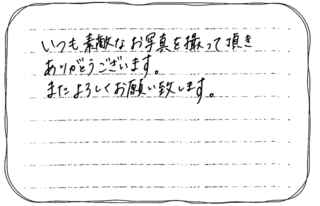 いつも素敵なお写真を撮って頂き
ありがとうございます。
またよろしくお願い致します。